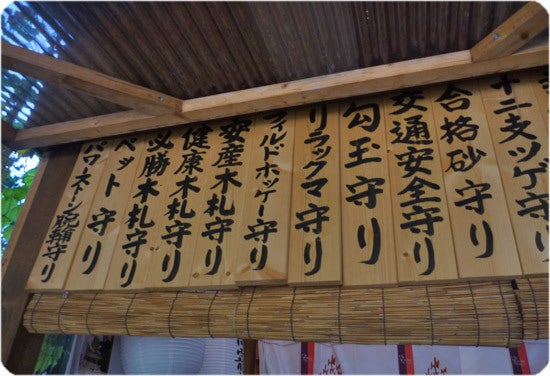 十二支ツゲ守り
合格砂守り
交通安全守り
勾玉守り
リラックマ守り
フィルドホッケー守り
安産木札守り
健康木札守り
必勝木札守り
ペット守り
パワーストーン守り